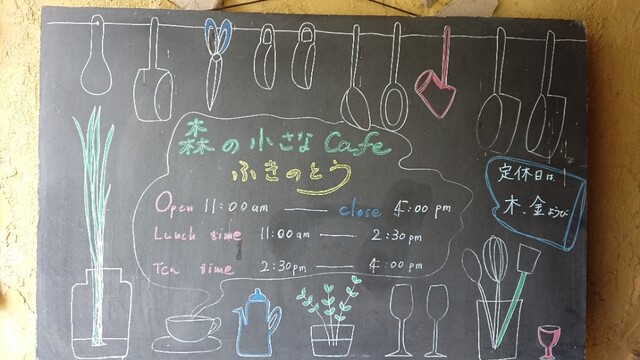 森の小さな Cafe
ふきのとう
Open 11:00 am — close 4:00 pm
Lunch time 11:00 am — 2:30 pm
Tea time 2:30 pm — 4:00 pm
定休日は
木、金ようび